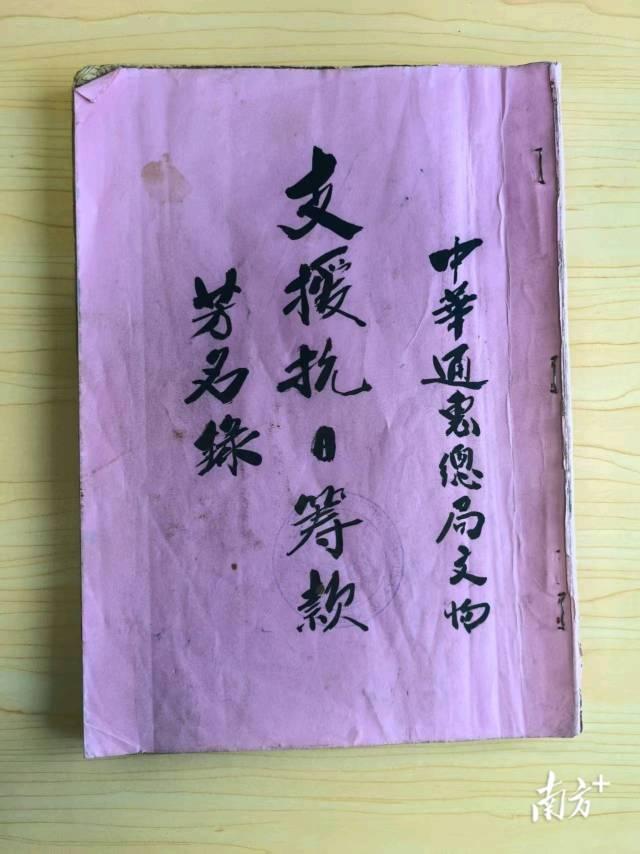 中華通惠總局文物
支援抗日筹款
芳名錄
南方+